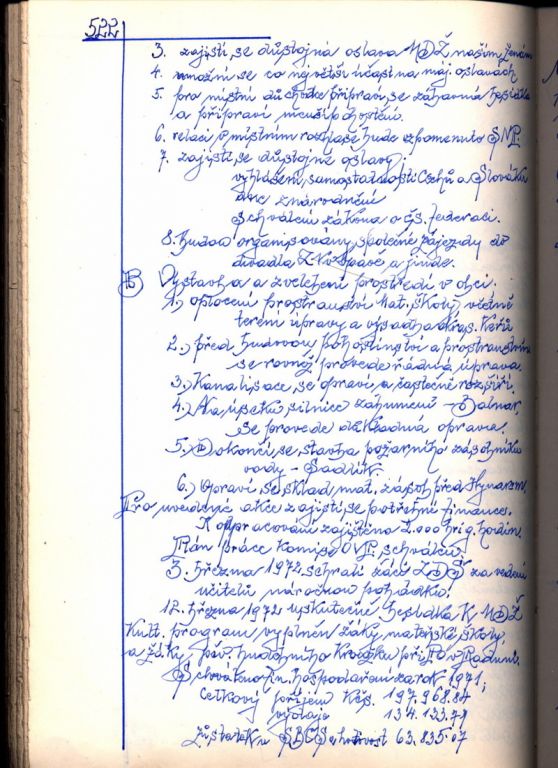 522
3. zajistí se důstojná oslava MDŽ našim ženám
4. umožní se co největší účast na máj. oslavách
5. pro místní důchodce připraví se zábavná besídka
a připraví menší pohoštění.
6. relací v místním rozhlase bude vzpomenuto SNP.
7. zajistí se důstojné oslavy:
vyhlášení samostatnosti Čechů a Slováků
den znárodnění
schválení zákona o čs. federaci.
8. budou organisovány společné zájezdy do
divadla z Kviz Opavě a jinde.
B Výstavba a zvelebení prostředí v obci.
1.) oplocení prostranství mat. školy včetně
terení úpravy a výsadba okras. keřů
2.) před budovou pohostinství a prostranstvím
se rovněž provede řádná úprava.
3.) Kanalisace se opraví a částečně rozšíří.
4.) Na úseku silnice záhumení –
se provede důkladná oprava.
5. Dokončí se stavba požárního zásobníku
vody – Sadlík
6.) Opraví se sklad mat. zásob před
Pro uvedené akce zajistí se potřebné finance.
K odpracování zajištěno 2.000 brig. hodin.
Plán práce komise OVP. schválen.
3. března 1972 sehráli žáci ZDŠ za vedení
učitelů národní pohádku.
12. března 1972 uskutečněna besídka k MDŽ
Kult. program vyplněn žáky mateřské školy
a žáky pěv. hudebního kroužku při PO. v Raduni.
Schváleno fin. hospodaření za rok 1971;
Celkový příjem Kčs. 197.968.84
výdaje 134.133.77
zůstatek u SBČS a hotovost 63.835.07